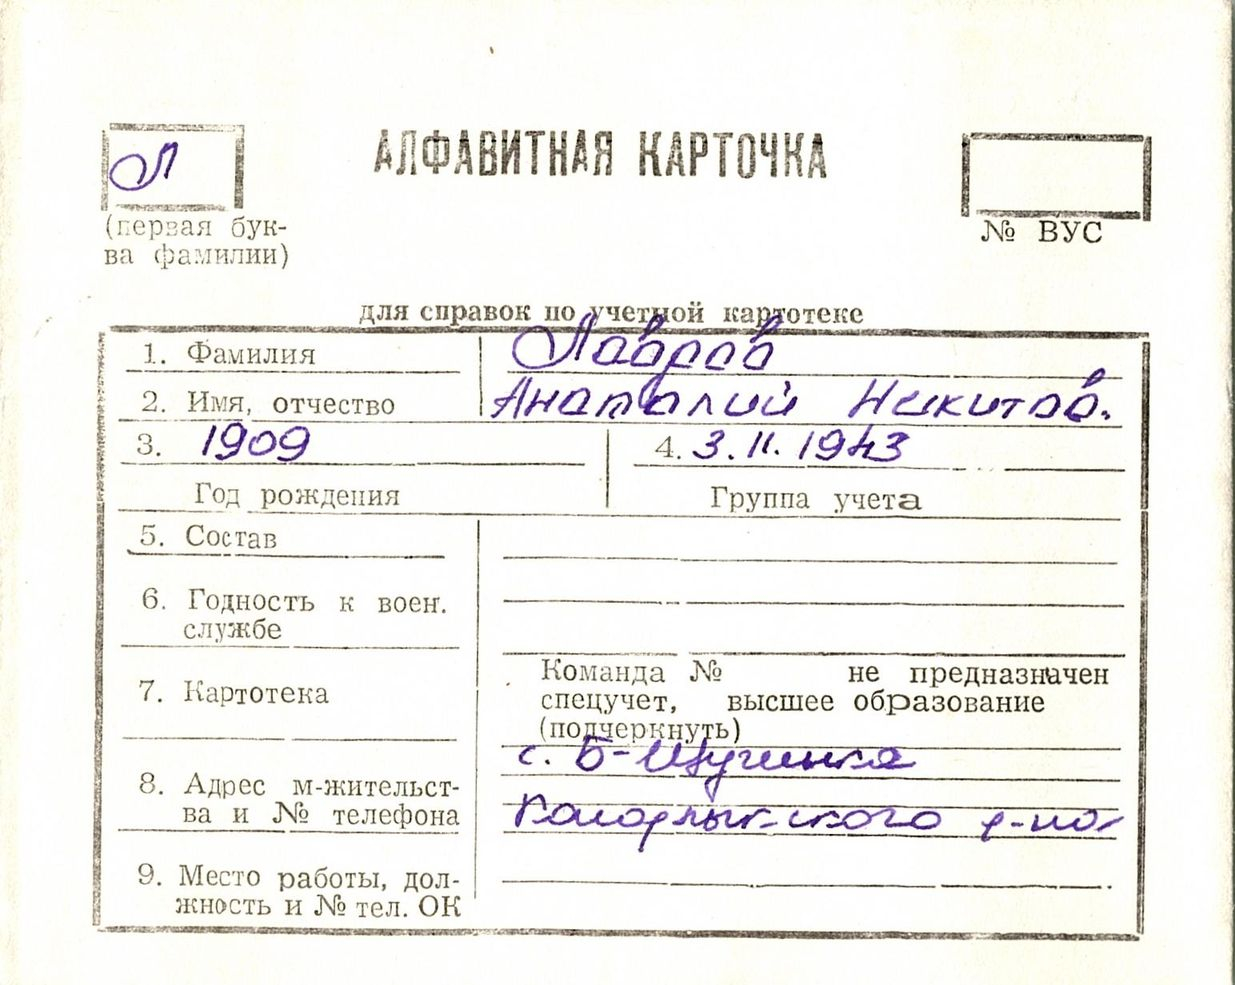 Л
АЛФАВИТНАЯ КАРТОЧКА
(первая бук-
ва фамилии)
№ ВУС
для справок по учетной картотеке
1. Фамилия Лавров
2. Имя, отчество Анатолий Никитов.
3. 1909 4. 3.11.1943
Год рождения Группа учета
5. Состав
6. Годность к воен.
службе
Команда № не предназначен
7. Картотека спецучет, высшее образование
(подчеркнуть)
с. Б-Щучинка
8. Адрес м-жительст-
ва и № телефона Кагарлыкского р-на
9. Место работы, дол-
жность и № тел. ОК